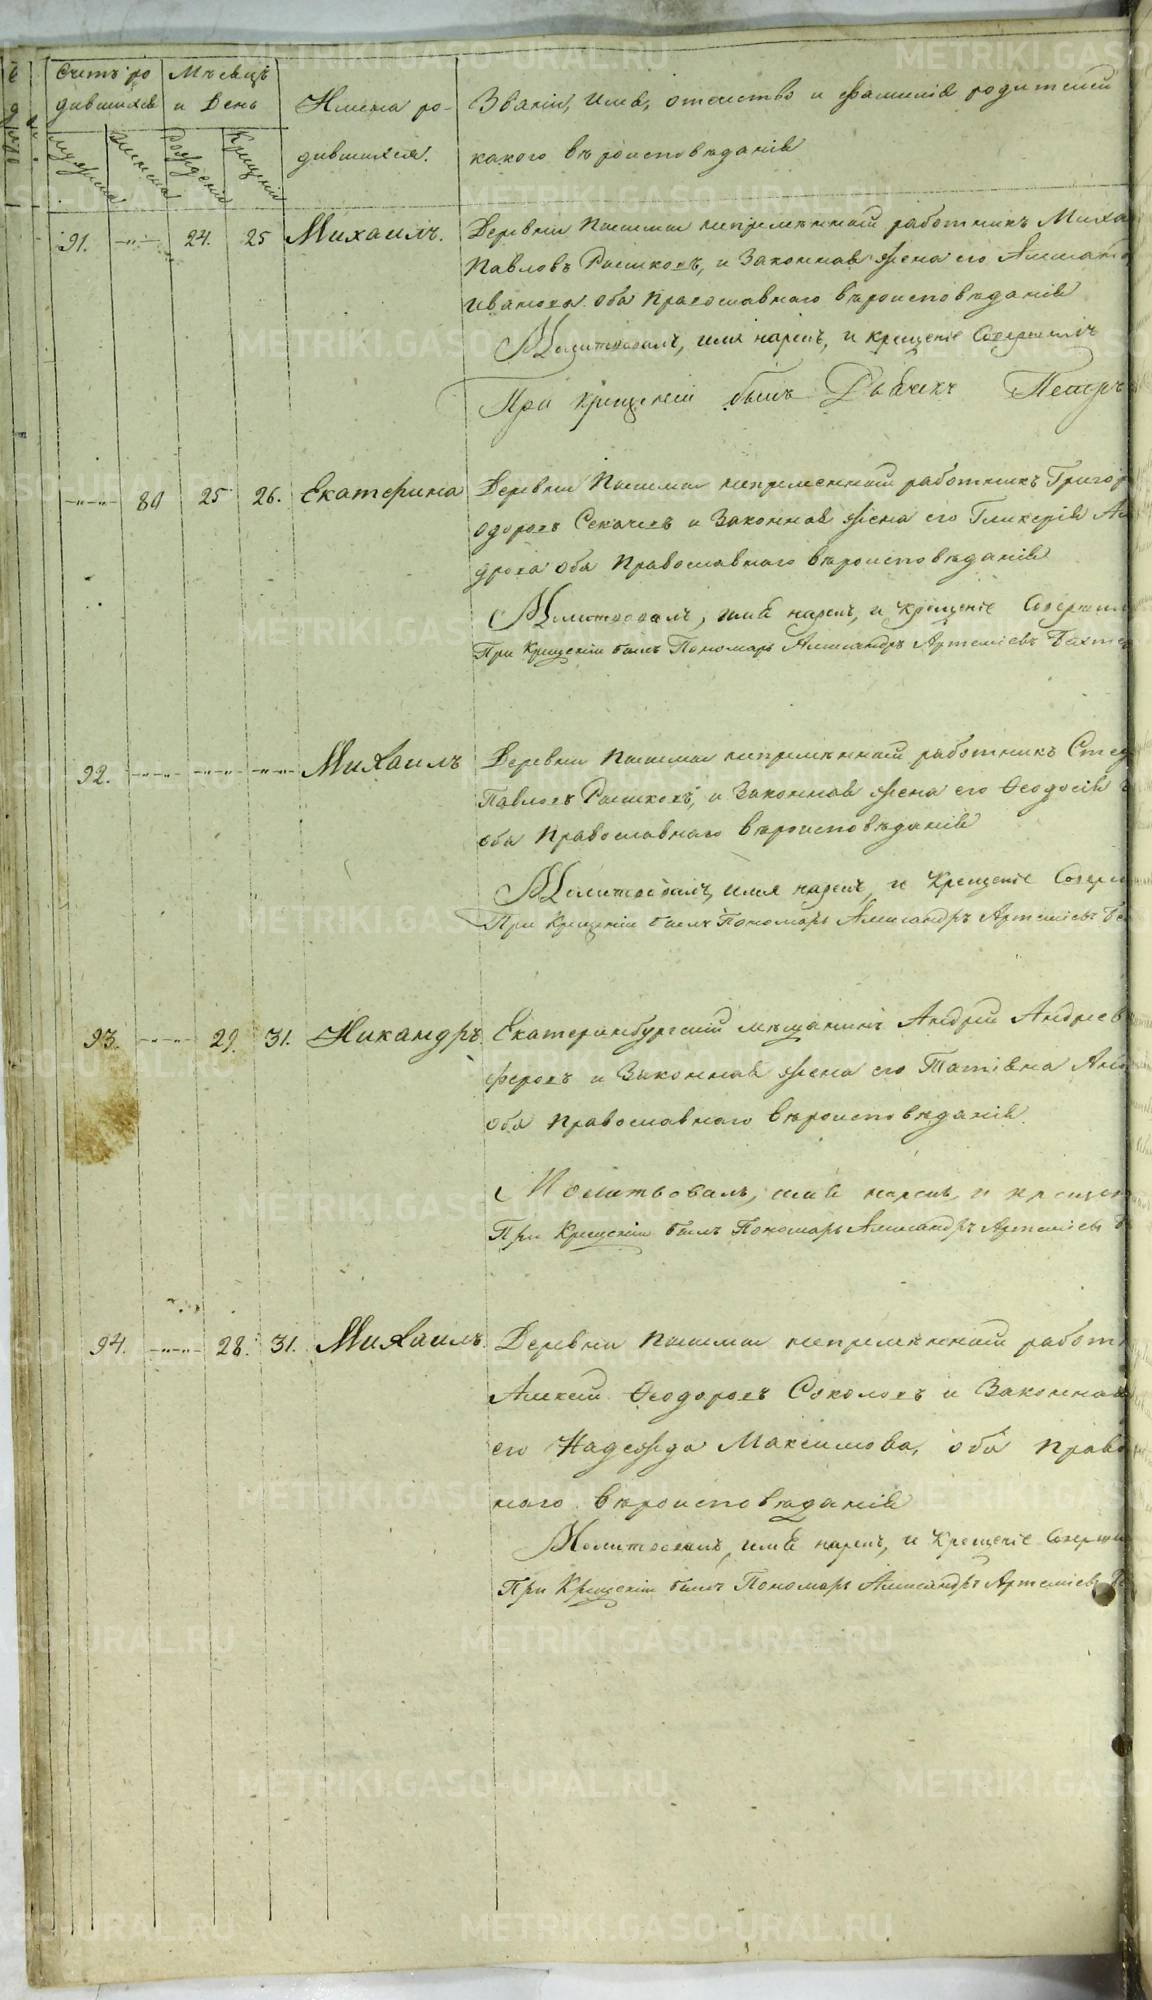 Счетъ ро Мѣсяцъ
дившихся и День Имена ро- Званіе, имя, отечество и фамилія родителей
мужска женска рожденія крещенія дившихся. какого вѣроисповѣданія
91. 24. 25 Михаилъ. Деревни непремѣнный работникъ Миха
Павловъ и Законная жена его
Иванова оба Православнаго вѣроисповѣданія
Молитвовалъ, имя нарекъ, и крещеніе Совершилъ
При крещеніи былъ Дьячекъ Петръ
80 25 26. Екатерина Деревни непременный работникъ Григор
одоровъ Секачевъ и Законная жена его Гликерія
дрова оба Православнаго вѣроисповѣданія
Молитвовалъ, имя нарекъ, и крещеніе Совершил
При Крещеніи былъ Пономарь Александръ Артемьевъ
92. Михаилъ Деревни непремѣнный работникъ
Павловъ и Законная жена его Ѳеодосія
оба Православнаго вѣроисповѣданія
Молитвовалъ, имя нарекъ, и Крещеніе Совер
При Крещеніи былъ Пономарь Александръ Артемьевъ
93. 29. 31. Никандръ. Екатеринбургскій мѣщанинъ Андрей Андреев
феровъ и Законная жена его Татіяна
оба Православнаго вѣроисповѣданія.
Молитвовалъ, имя нарекъ, и крещен
При Крещеніи былъ Пономарь Александръ Артемьевъ
94. 28. 31. Михаилъ. Деревни непремѣнный работ
Алексей Ѳеодоровъ Соколовъ и Законная
его Надежда Максимова, оба Право
наго вѣроисповѣданія
Молитвовалъ, имя нарекъ, и Крещеніе Соверши
При Крещеніи былъ Пономарь Александръ Артемьевъ
METRIKI.GASO-URAL.RU